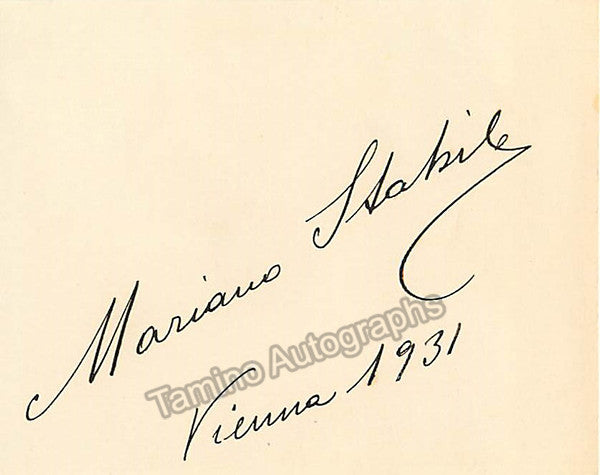 Mariano Stabile
Tamino Autographs
Vienna 1931